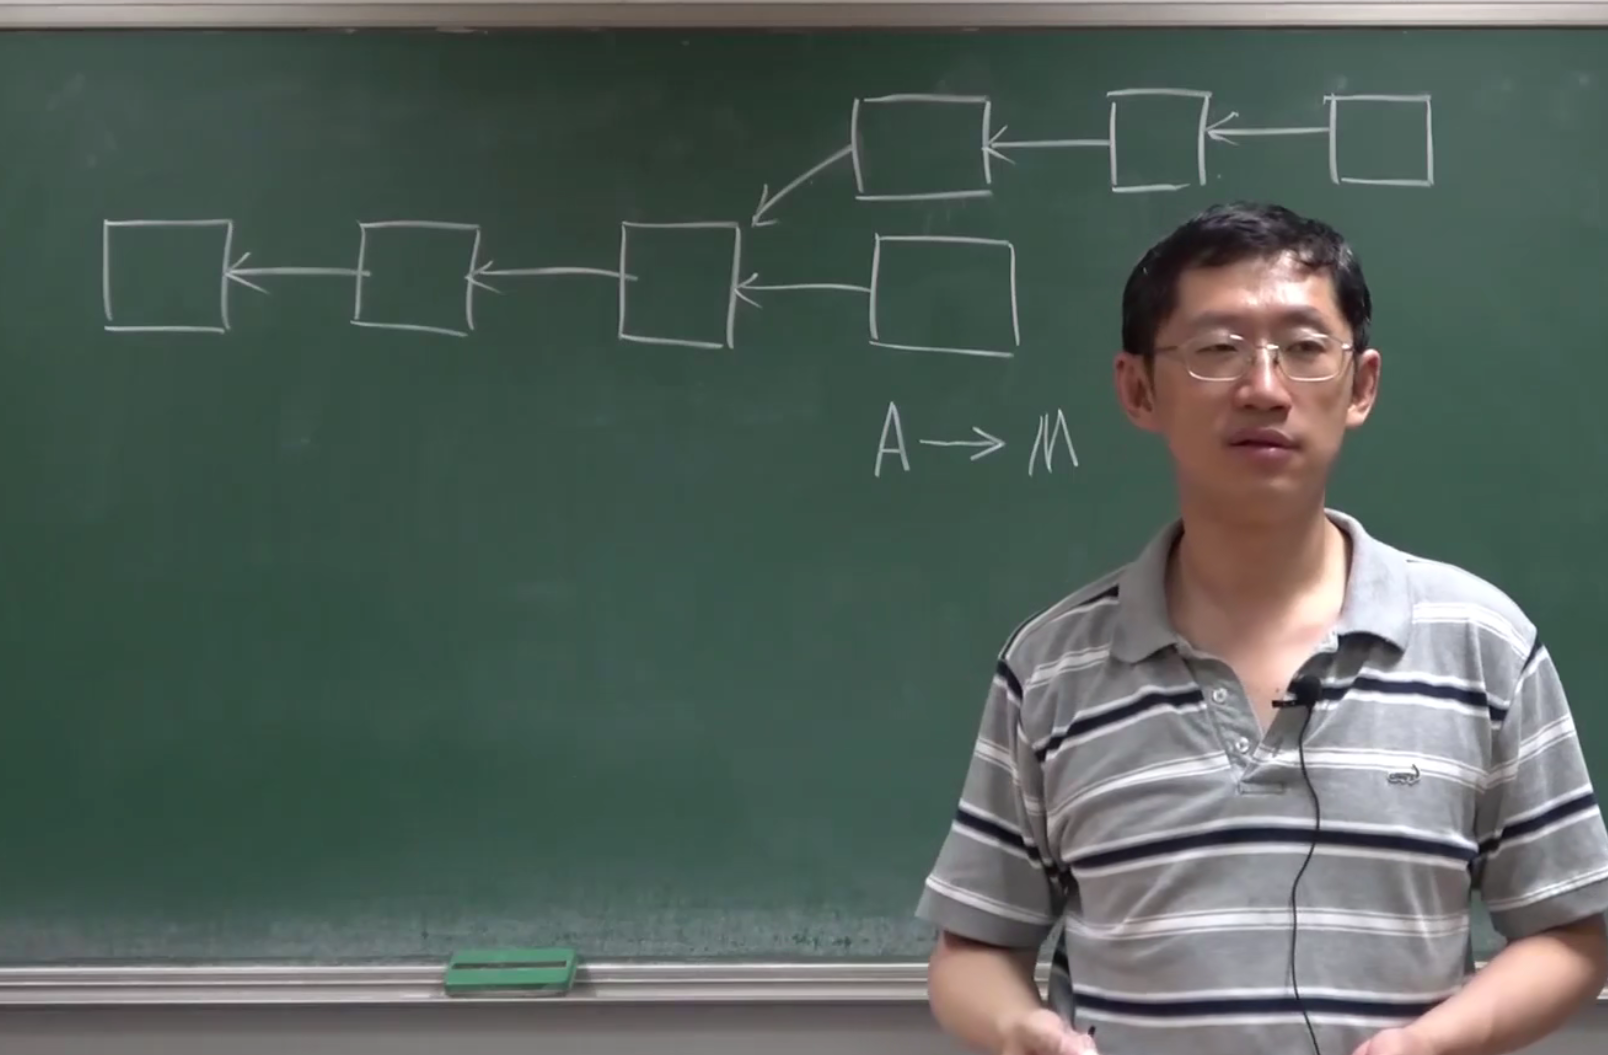 A → M